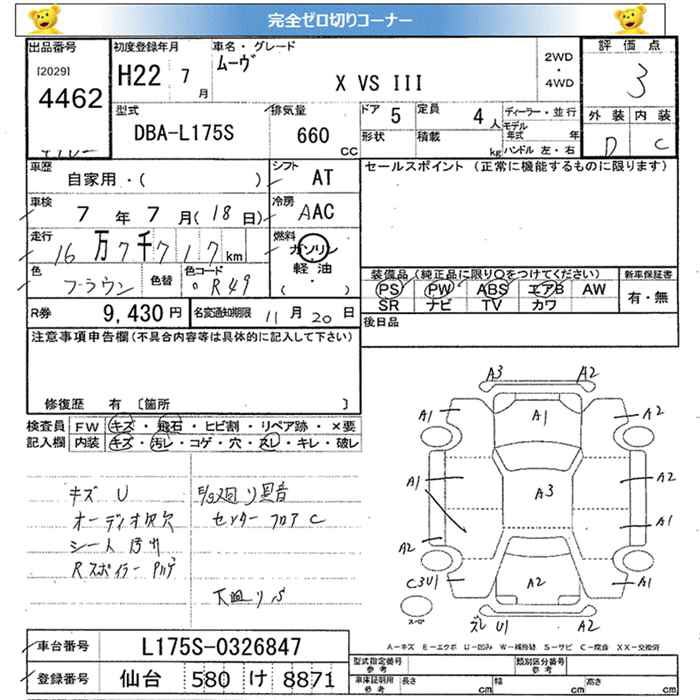 完全ゼロ切りコーナー
出品番号
[2029]
4462
初度登録年月
H22 7月
車名・グレード
ムーヴ
X VS III
2WD
・
4WD
評価点
3
外装 内装
D C
型式
DBA-L175S
排気量
660 CC
ドア 5
定員 4人
形状
積載 kg
ディーラー・並行
モデル
年式 年
ハンドル 左・右
車歴
自家用・( )
シフト
AT
セールスポイント (正常に機能するものに限ります)
車検
7年 7月(18日)
冷房
AAC
走行
16万7千717km
燃料
ガソリン
軽油
( ・ )
色
ブラウン
色替
色コード
R49
装備品(純正品に限り○をつけてください)
新車保証書
PS PW ABS エアB AW
SR ナビ TV カワ
有・無
後日品
R券 9,430円
名変通知期限 11月20日
注意事項申告欄(不具合内容等は具体的に記入して下さい)
修復歴 有 〔箇所 〕
検査員
記入欄
FW キズ・飛石・ヒビ割・リペア跡・×要
内装 キズ・汚レ・コゲ・穴・スレ・キレ・破レ
キズ U
オーディオ欠
シート汚れ
Rスポイラー Pハゲ
E/g廻り異音
センターフロア C
下廻りS
A3 A2
A1 A1 A2
A1 A3 A2
A1
A2
C3U1 A2 A1
ズレ U1
スペア
A-キズ E-エクボ U-凹ミ W-補修跡 S-サビ C-腐食 XX-交換済
車台番号 L175S-0326847
登録番号 仙台 580 け 8871
型式指定番号
参考
類別区分番号
参考
車庫証明用
参考
長さ cm 幅 cm 高さ cm